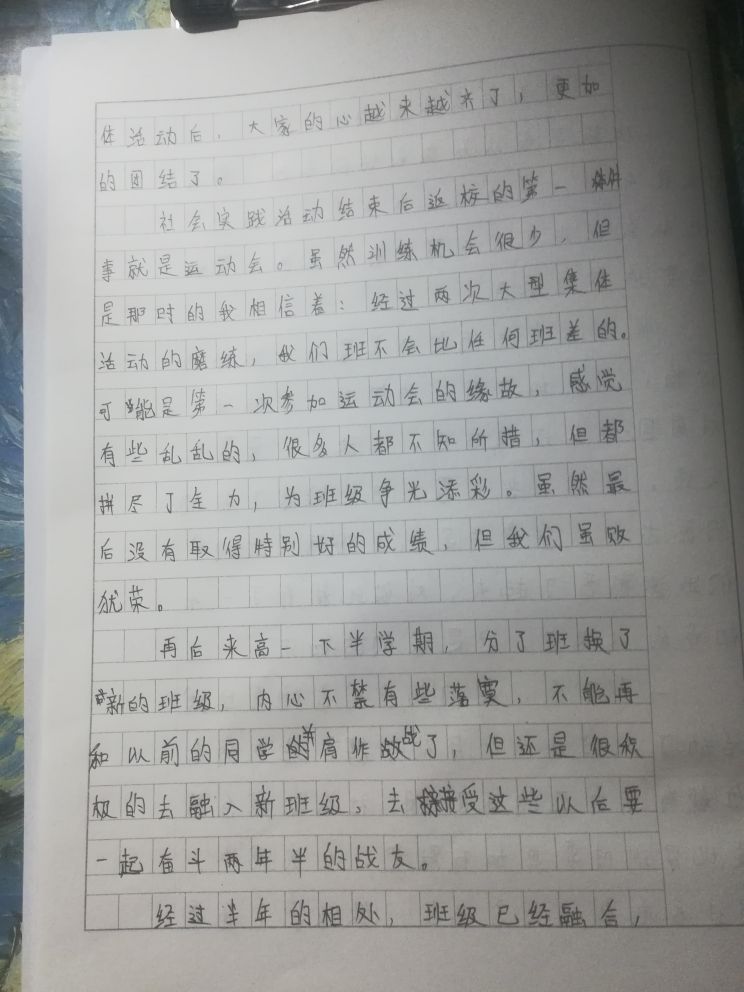 体活动后，大家的心越来越齐了，更加
的团结了。
社会实践活动结束后返校的第一件
事就是运动会。虽然训练机会很少，但
是那时的我相信着：经过两次大型集体
活动的磨练，我们班不会比任何班差的。
可能是第一次参加运动会的缘故，感觉
有些乱乱的，很多人都不知所措，但都
拼尽了全力，为班级争光添彩。虽然最
后没有取得特别好的成绩，但我们虽败
犹荣。
再后来高一下半学期，分了班换了
新的班级，内心不禁有些落寞，不能再
和以前的同学并肩作战了，但还是很积
极的去融入新班级，去接受这些以后要
一起奋斗两年半的战友。
经过半年的相处，班级已经融合，